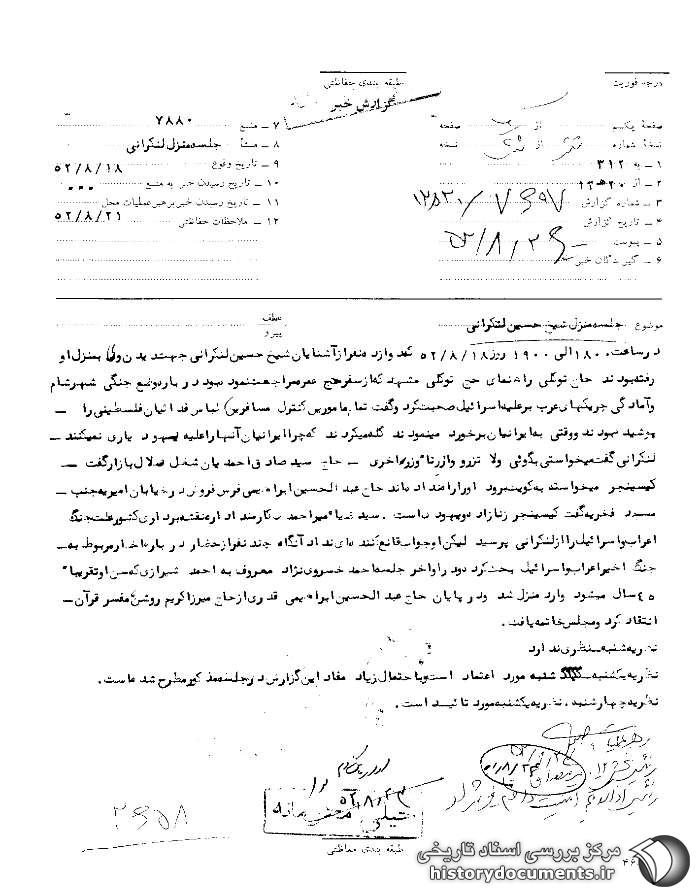 درجه فوریت
طبقه بندی حفاظتی
گزارش خبر
صفحه یکم از صفحه
نسخه شماره از نسخه
۱ ـ به ۳۱۲
۲ ـ از ۲۰ هـ ۱۲
۳ ـ شماره گزارش
۴ ـ تاریخ گزارش
۵ ـ پیوست
۶ ـ گیرندگان خبر
۷ ـ منبع ۷۸۸۰
۸ ـ منشأ جلسه منزل لنکرانی
۹ ـ تاریخ وقوع ۵۲/۸/۱۸
۱۰ ـ تاریخ رسیدن خبر به منبع
۱۱ ـ تاریخ رسیدن خبر برهبر عملیات محل
۱۲ ـ ملاحظات حفاظتی
۵۲/۸/۲۱
موضوع جلسه منزل شیخ حسین لنکرانی
عطف
پیرو
در ساعت ۱۸۰۰ الی ۱۹۰۰ روز ۵۲/۸/۱۸ نفر از آشنایان شیخ حسین لنکرانی جهت دیدن وی بمنزل او
رفته بودند حاج توکلی راهنمای حج توکلی مشهد که از سفر حج عمره مراجعت نموده بود در باره وضع جنگی شهر شام
وآمادگی چریکهای عرب بر علیه اسرائیل صحبت کرد و گفت تمام مامورین کنترل مسافرین لباس فدائیان فلسطینی را ـ
پوشیده بودند و وقتی به ایرانیان برخورد مینمودند گله میکردند که چرا ایرانیان آنها را علیه یهود یاری نمیکنند ـ
لنکرانی گفت میخواستی بگوئی ولا تزرو وازرتا وزرو اخری ـ حاج سید صادق احمدیان شغل دلال بازار گفت ـ
کیسینجر میخواسته به کویت برود او را راه نداده‌اند حاج عبدالحسین ابراهیمی فرش فروش در خیابان امیریه جنب ـ
مسجد فخریه گفت کیسینجر نژاد او یهودی است . سید ضیاء میراحمدی کارمند اداره نقشه برداری کشور علت جنگ
اعراب و اسرائیل را از لنکرانی پرسید لیکن او جواب قانع کننده‌ای نداد آنگاه چند نفر از حضار در باره اخبار مربوط به ـ
جنگ اخیر اعراب و اسرائیل بحث کردند و در اواخر جلسه احمد خسروی نژاد معروف به احمد شیرازی که سن او تقریبا
۴۵ سال میشود وارد منزل شد و در پایان حاج عبدالحسین ابراهیمی قدری از حاج میرزا کریم روشن مفسر قرآن ـ
انتقاد کرد و مجلس خاتمه یافت .
نظریه شنبه ـ نظری ندارد
نظریه یکشنبه ـ شنبه مورد اعتماد است و با احتمال زیاد مفاد این گزارش در جلسه مذکور مطرح شده است .
نظریه چهارشنبه ـ نظریه یکشنبه مورد تائید است .
۲۶۵۸
طبقه بندی حفاظتی
مرکز بررسی اسناد تاریخی
historydocuments.ir